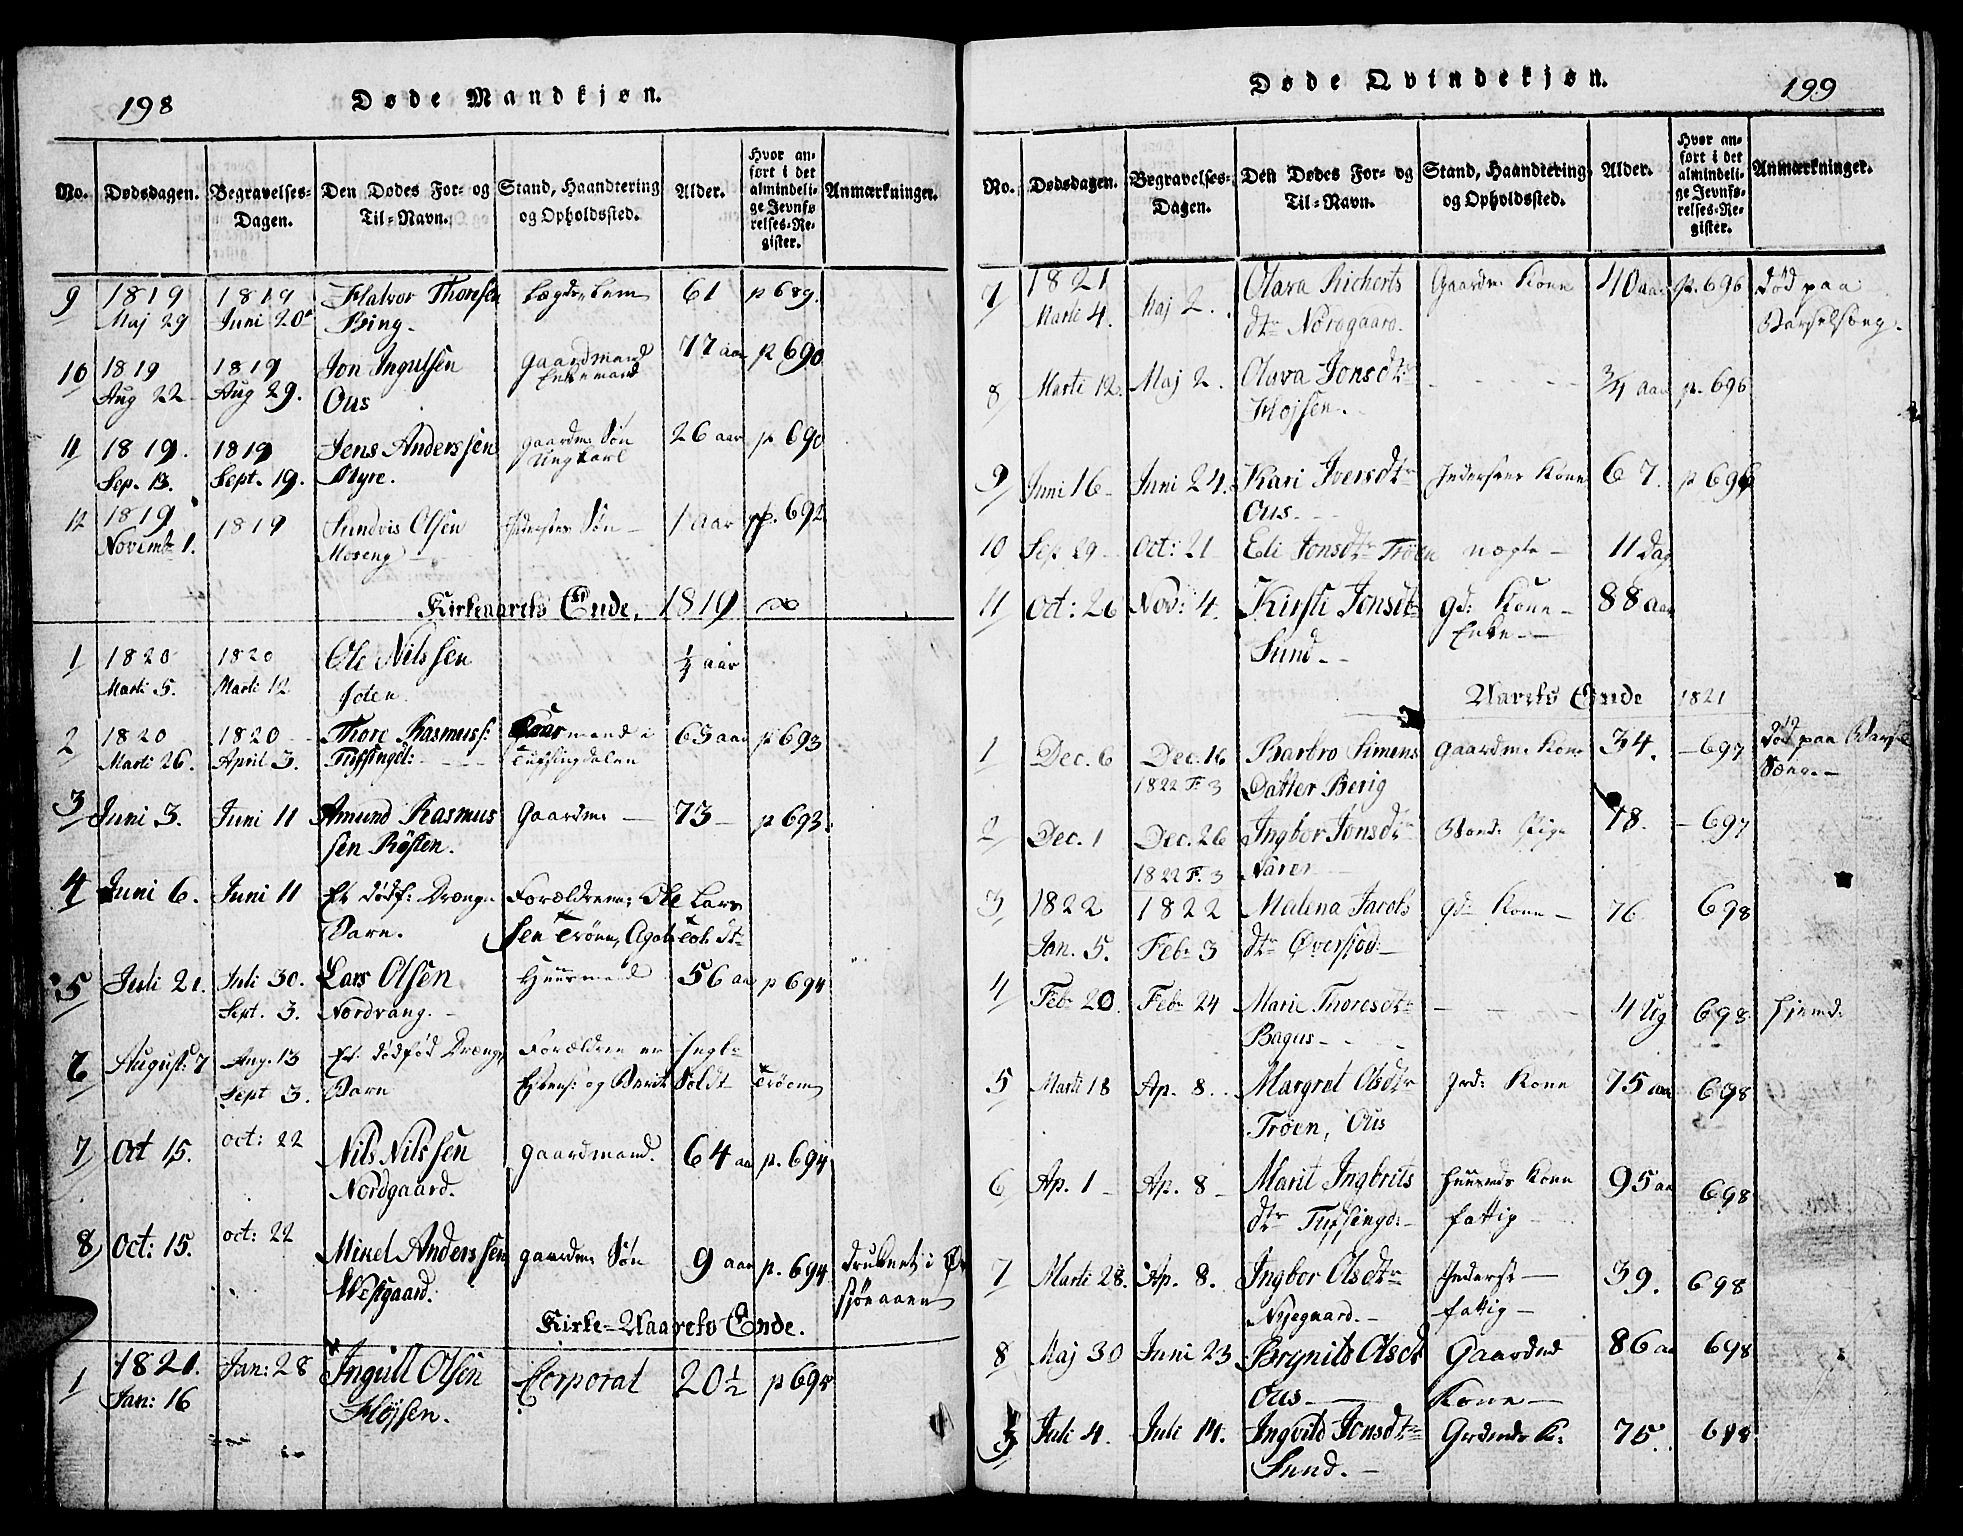 198
Døde Mandkjøn.
No. Dødsdagen. Begravelses-Dagen. Den Dødes For- og Til-Navn. Stand, Haandtering og Opholdssted. Alder. Hvor anført i det almindelige Jevnførelses-Register. Anmærkninger.
9 1819 1819 Halvor Thoresen Lægdslem 61 p 689.
Maj 29 Juni 20 Bing.
10 1819 1819 Jon Ingulfsen Gaardmand 77 aar p 690
Aug 22 Aug 29. Ous Enkemand
11 1819. 1819 Jens Anderssen gaardm. Søn 26 aar p 690
Sep. 13. Sept. 19. Myre. Ungkarl
12 1819 1819 Sundvis Olsen Søn 1 aar p. 692
Novembr 1. Moseng
Kirkeaarets Ende. 1819
1 1820 1820 Ole Nilssen 1/4 aar
Marti 5. Marti 12
2 1820 1820 Thore Rasmuss: Gaarmand i 65 aar p 693
Marti 26. April 3. Tuffingdl: Tuffingdalen
3 Juni 3. Juni 11 Amund Rasmus Gaardm. 73 p 693.
sen Røsten.
4 Juni 6. Juni 11 Et dødf: Drænge Forældrene: Ole Lars
Barn. sen Trøen, Agate Ols dtr
5 Juli 21. Juli 30. Lars Olsen Huusmand 56 aar p 694
Sept. 3. Nordvang.
6 August: 7 Aug. 13 Et dødfød Drænge Forældre er Ingbr
Sept 3. Barn Estens: og Berit Troen
7 Oct 15. oct: 22 Nils Nilssen gaardmand. 64 aar p. 694
Nordgaard.
8 Oct: 15. oct: 22 Mikel Anderssen gaardm. Søn 9 aar p. 694 druknet i Ør
Westgaard. sjøeaaen
Kirke-Aarets Ende.
1 1821. Jan: 28 Ingull Olsen Corporal 20 1/2 p 695
Jan: 16 Fløjsen.
199
Døde Qvindekjøn.
No. Dødsdagen. Begravelses-Dagen. Den Dødes For- og Til-Navn. Stand, Haandtering og Opholdssted. Alder. Hvor anført i det almindelige Jevnførelses-Register. Anmærkninger.
7 1821 Maj 2. Olava Richerts Gaardm. Kone 40 aar p. 696 død paa
Marti 4. dtr Nordgaard. Barselseng.
8 Marti 12. Maj 2. Olava Jonsdtr 3/4 aar p. 696
Fløjsen.
9 Juni 16 Juni 24. Kari Iversdtr Inderstes Kone 67. p 696
Ous.
10 Sep. 29 Oct: 21 Eli Jonsdtr Trøen uægte 11 Dag
11 Oct: 26 Nov: 4. Kirsti Jonsdtr gd: Kone 88 aar
Sund. Enke
Aarets Ende 1821
1 Dec. 6 Dec. 16 Barbro Simens Gaardm. Kone 34. 697 død paa Barsel
1822 F. 3 Datter Berig Sæng.
2 Dec. 1 Dec. 26 Ingbor Jonsdtr Bond: Pige 18. 697
1822 F. 3
3 1822 1822 Malena Jacobs gd: Kone 76 698
Jan. 5. Febr 3 dtr Øversjød:
4 Febr 20. Febr 24 Marie Thoresdtr 4 Ug 698 hjemd:
Bagus
5 Marti 18 Ap. 8. Margret Olsdtr grd: Kone 75 aar 698
Trøen, Ous
6 Ap. 1 Ap. 8 Marit Ingbrits Huusmds Kone 95 aar 698
dtr Tuffingd: fattig
7 Marti 28. Ap. 8. Ingbor Olsdtr Inderst 39. 698
Nyegaard. fattig
8 Maj 30 Juni 23 Brynild Olsdt Gaardmd 86 aar 698
Ous Kone
Juli 4. Juli 14. Ingvild Jonsdtr Grdmds K: 75. 698
Sund.